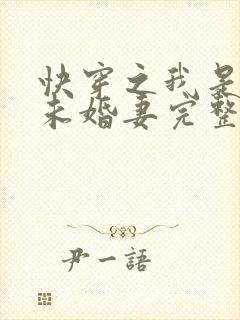 快穿之我是
未婚妻完整
尹一語